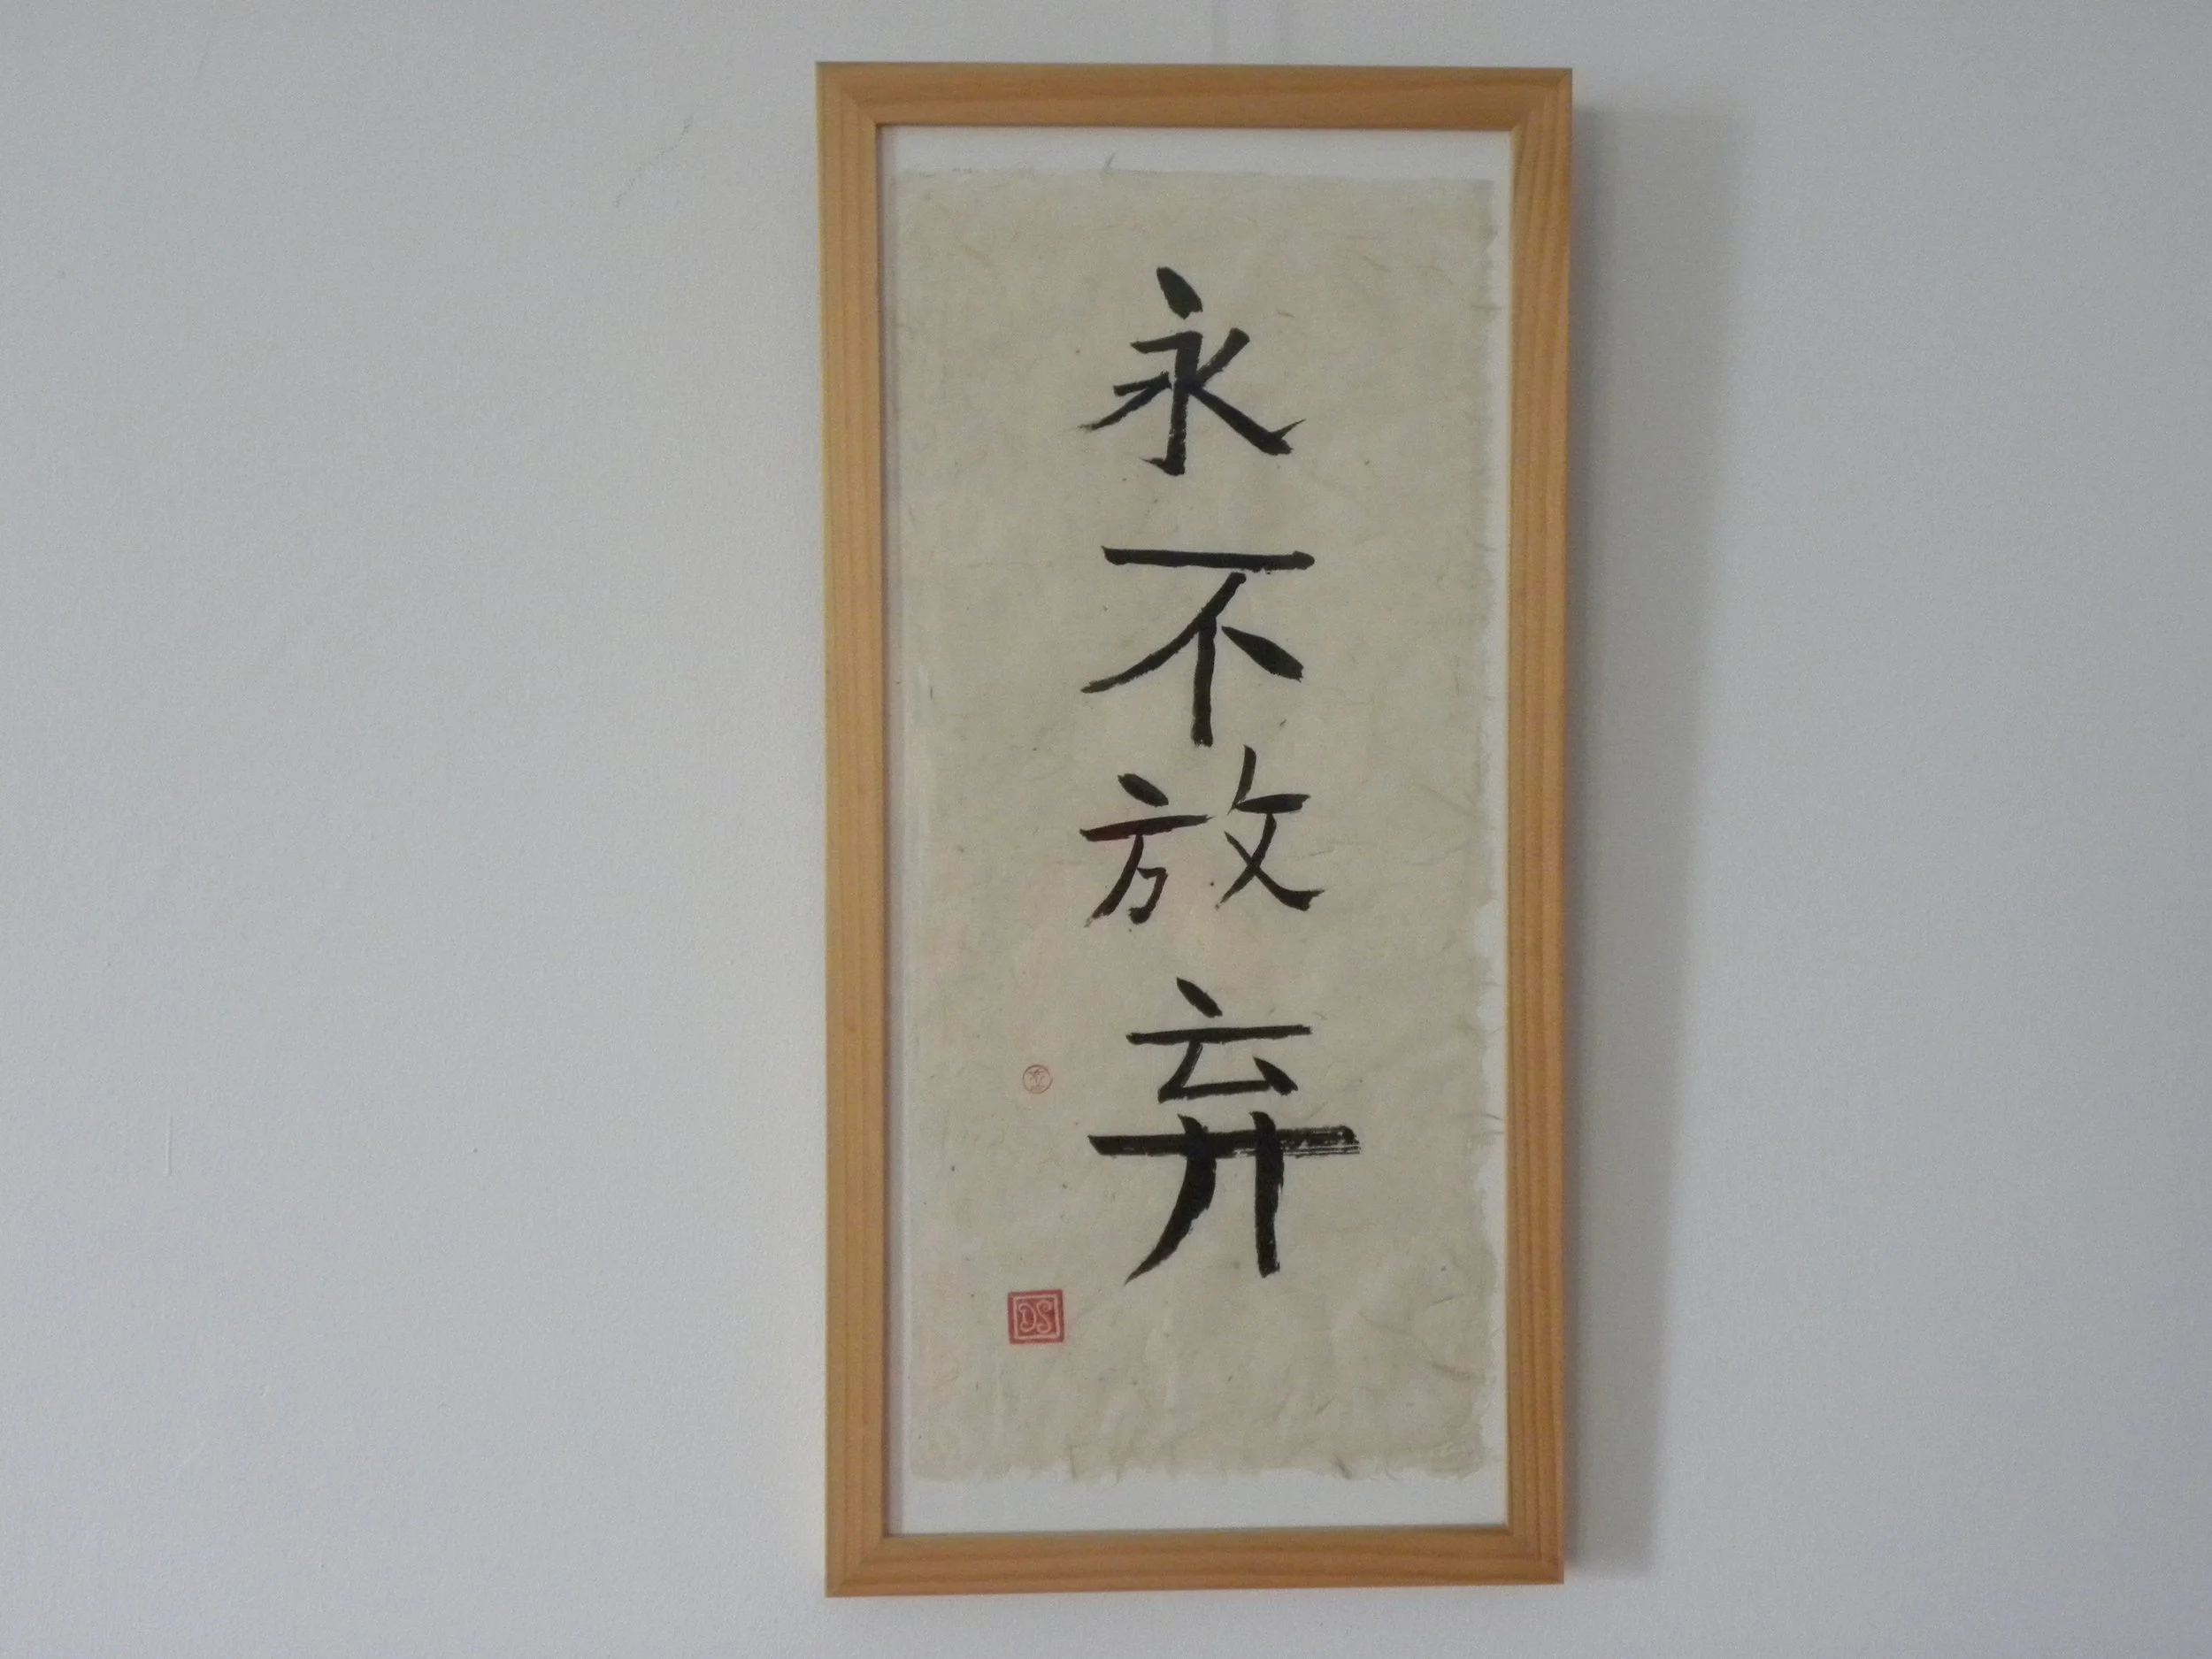 永不放弃
DS